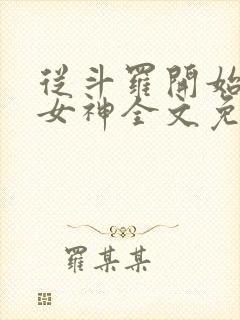 從斗羅開始
女神全文免
羅某某